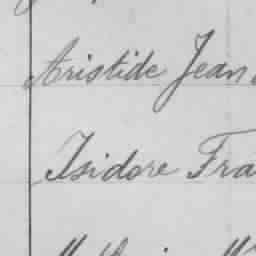 Aristide Jean
Isidore Fra